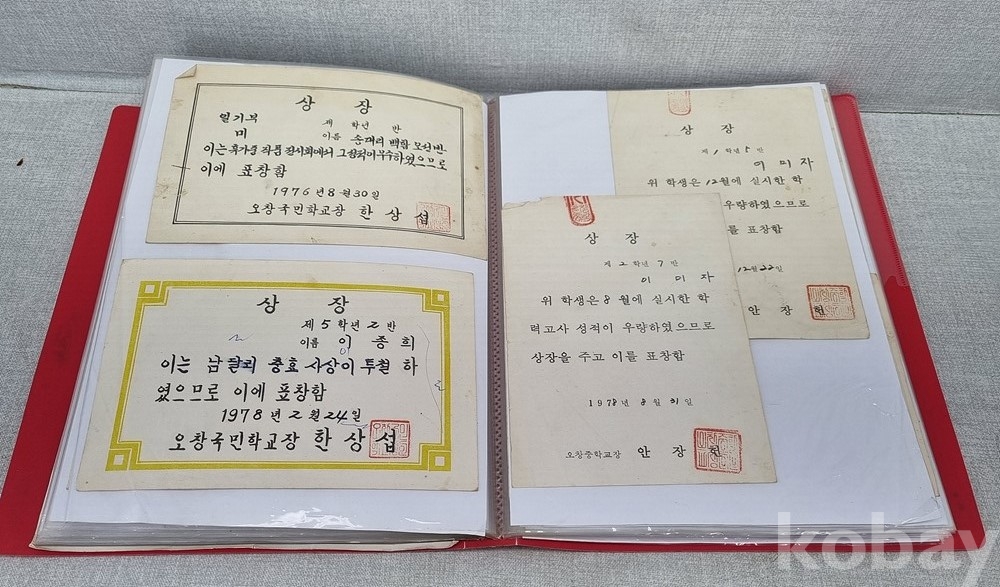 상 장
일기부
제 학년 반
미
이름 송대리 백합 모심반
이는 휴가철 작품 전시회에서 그 성적이 우수하였으므로
이에 표창함
1976년 8월 30일
오창국민학교장 한상섭
상 장
제 5 학년 2 반
이름 이종희
이는 남달리 충효 사상이 투철 하
였으므로 이에 표창함
1978 년 2 월 24 일
오창국민학교장 한상섭
상 장
제 1 학년 5 반
이 미 자
위 학생은 12월에 실시한 학
우량하였으므로
를 표창함
12월 22일
안 장 헌
상 장
제 2 학년 7 반
이 미 자
위 학생은 8 월에 실시한 학
력고사 성적이 우량하였으므로
상장을 주고 이를 표창함
1978년 8월 31일
오창중학교장 안 장 헌
kobay